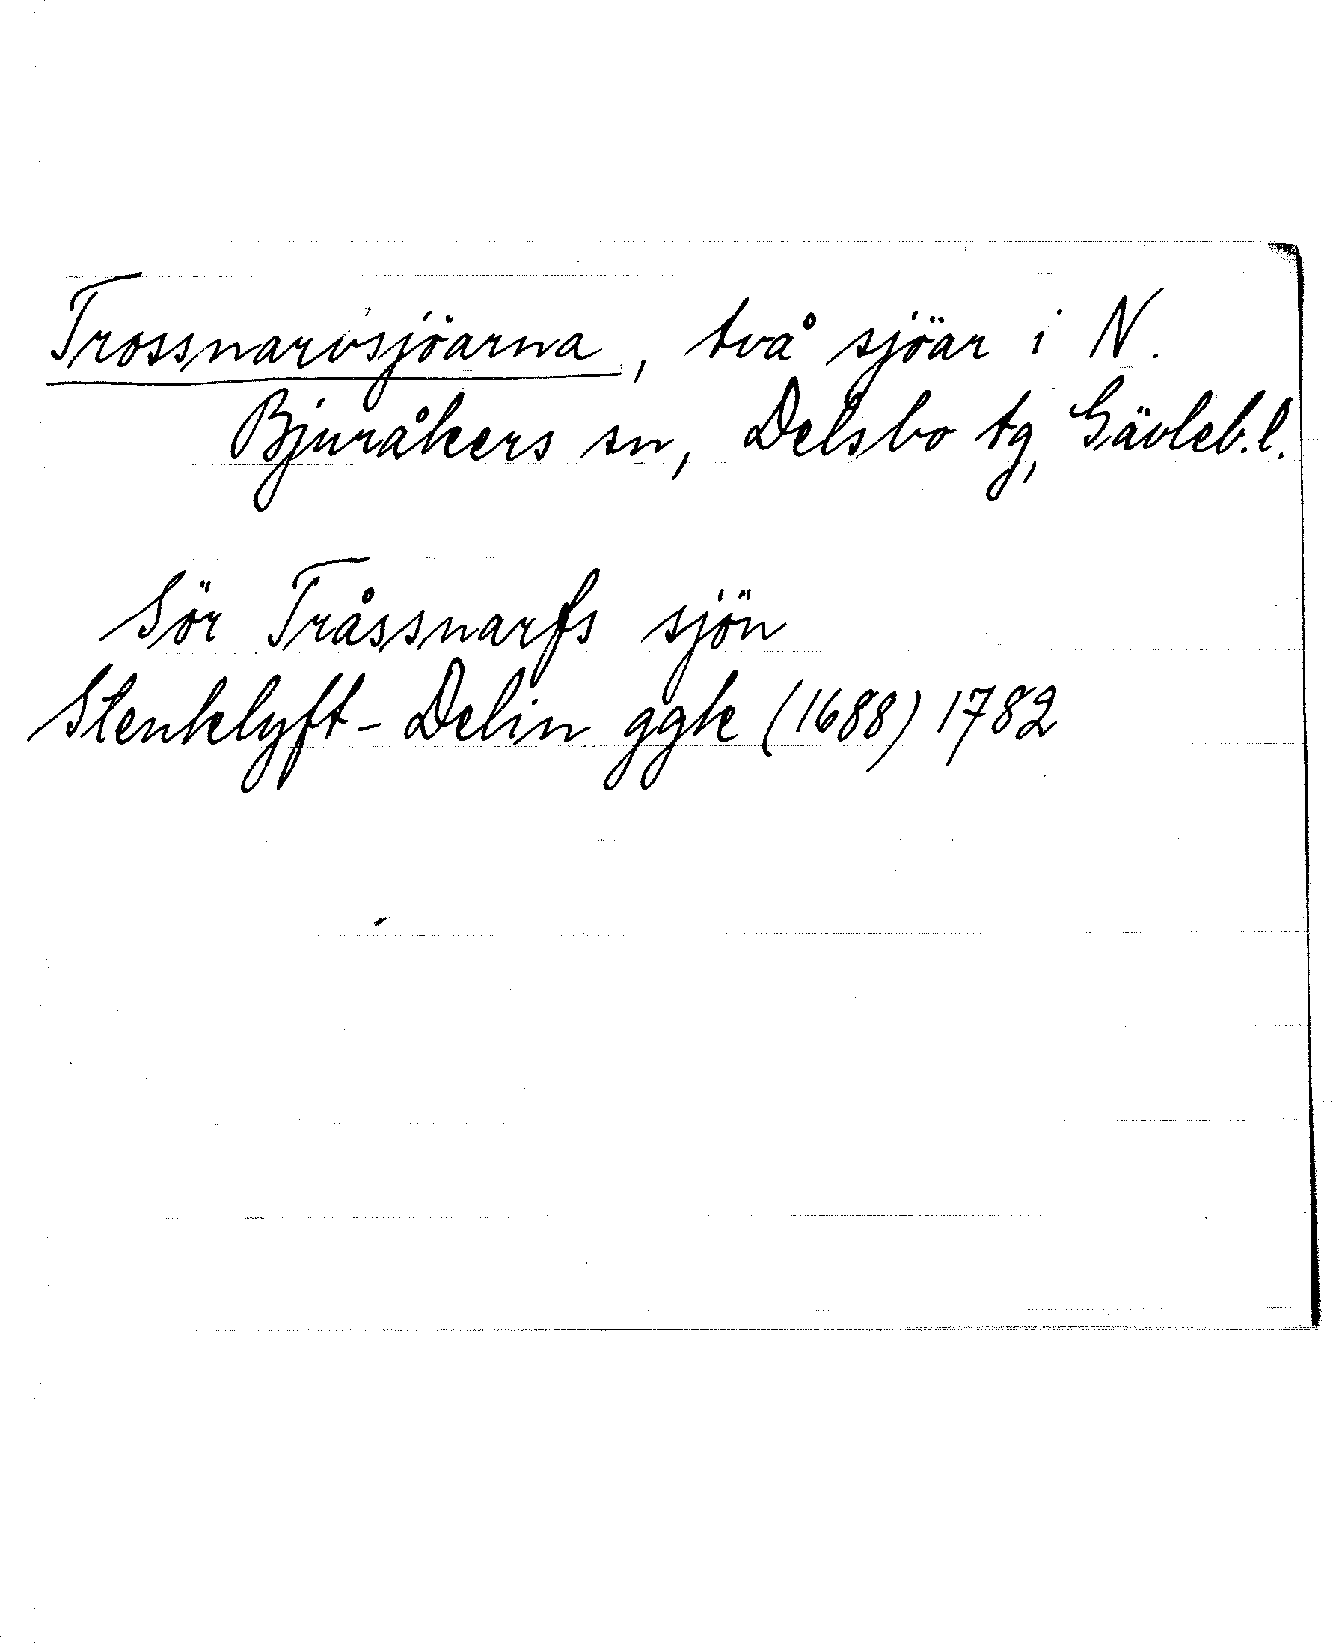 Trossnarvsjöarna, två sjöar i N.
Bjuråkers sn, Delsbo tg, Gävleb.l.
Sör Tråssnarfs sjön
Stenklyft - Delin ggk (1688) 1782